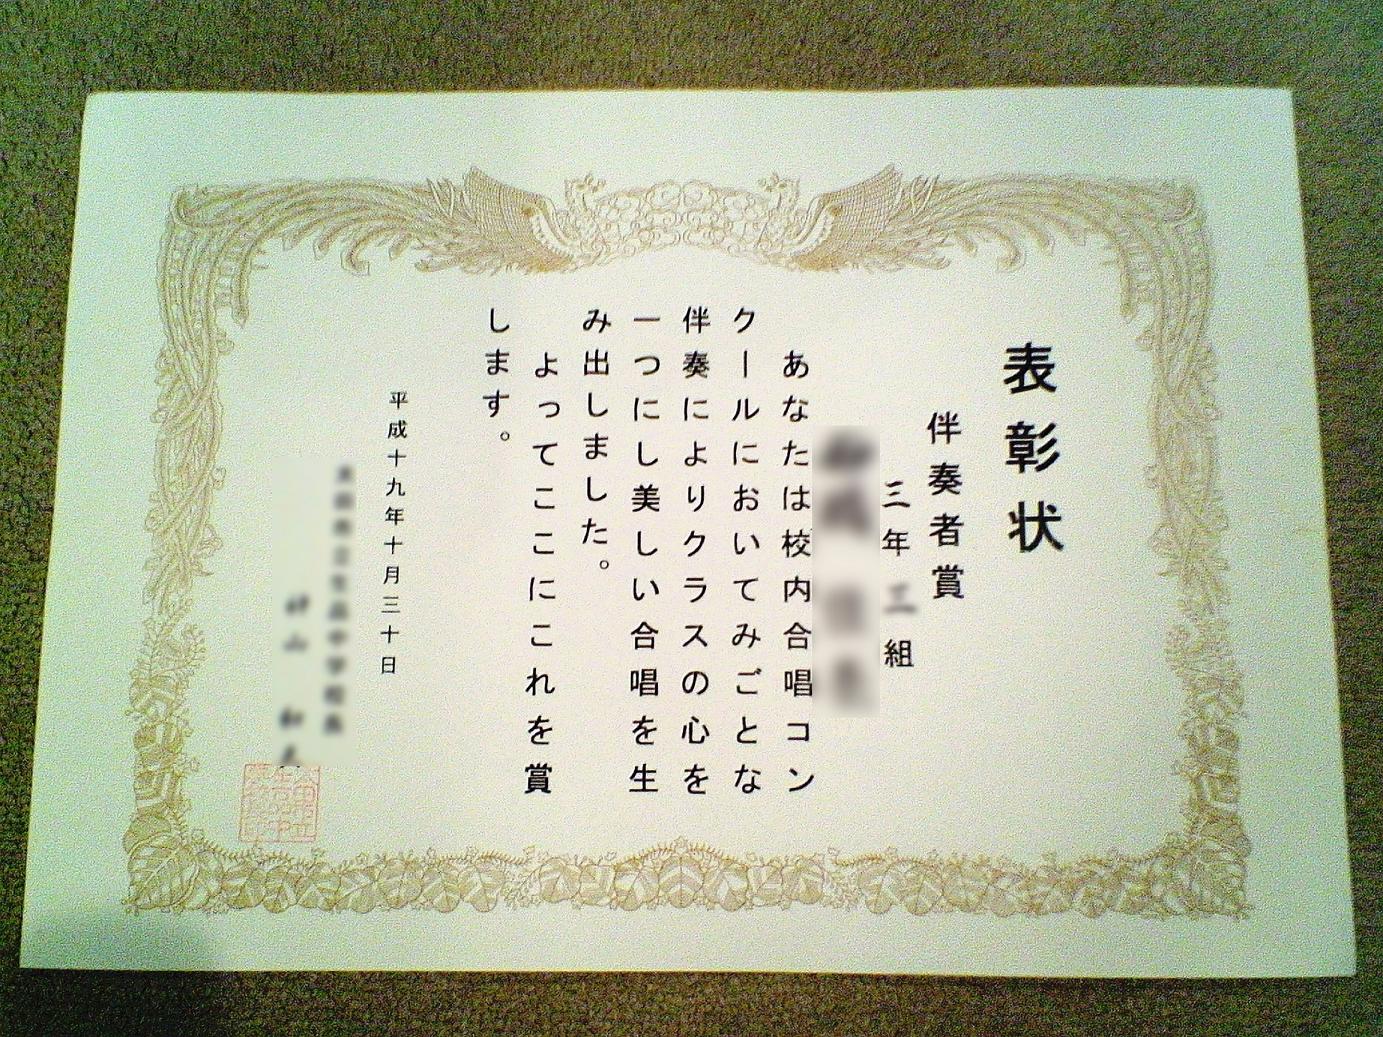 表彰状
伴奏者賞
三年 組
あなたは校内合唱コン
クールにおいてみごとな
伴奏によりクラスの心を
一つにし美しい合唱を生
み出しました。
よってここにこれを賞
します。
平成十九年十月三十日